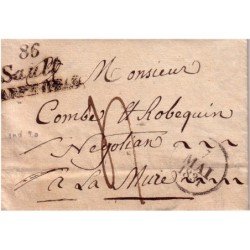 86
Sault
Monsieur
Combe & Robequin
Negotian
MAI
a La Mure